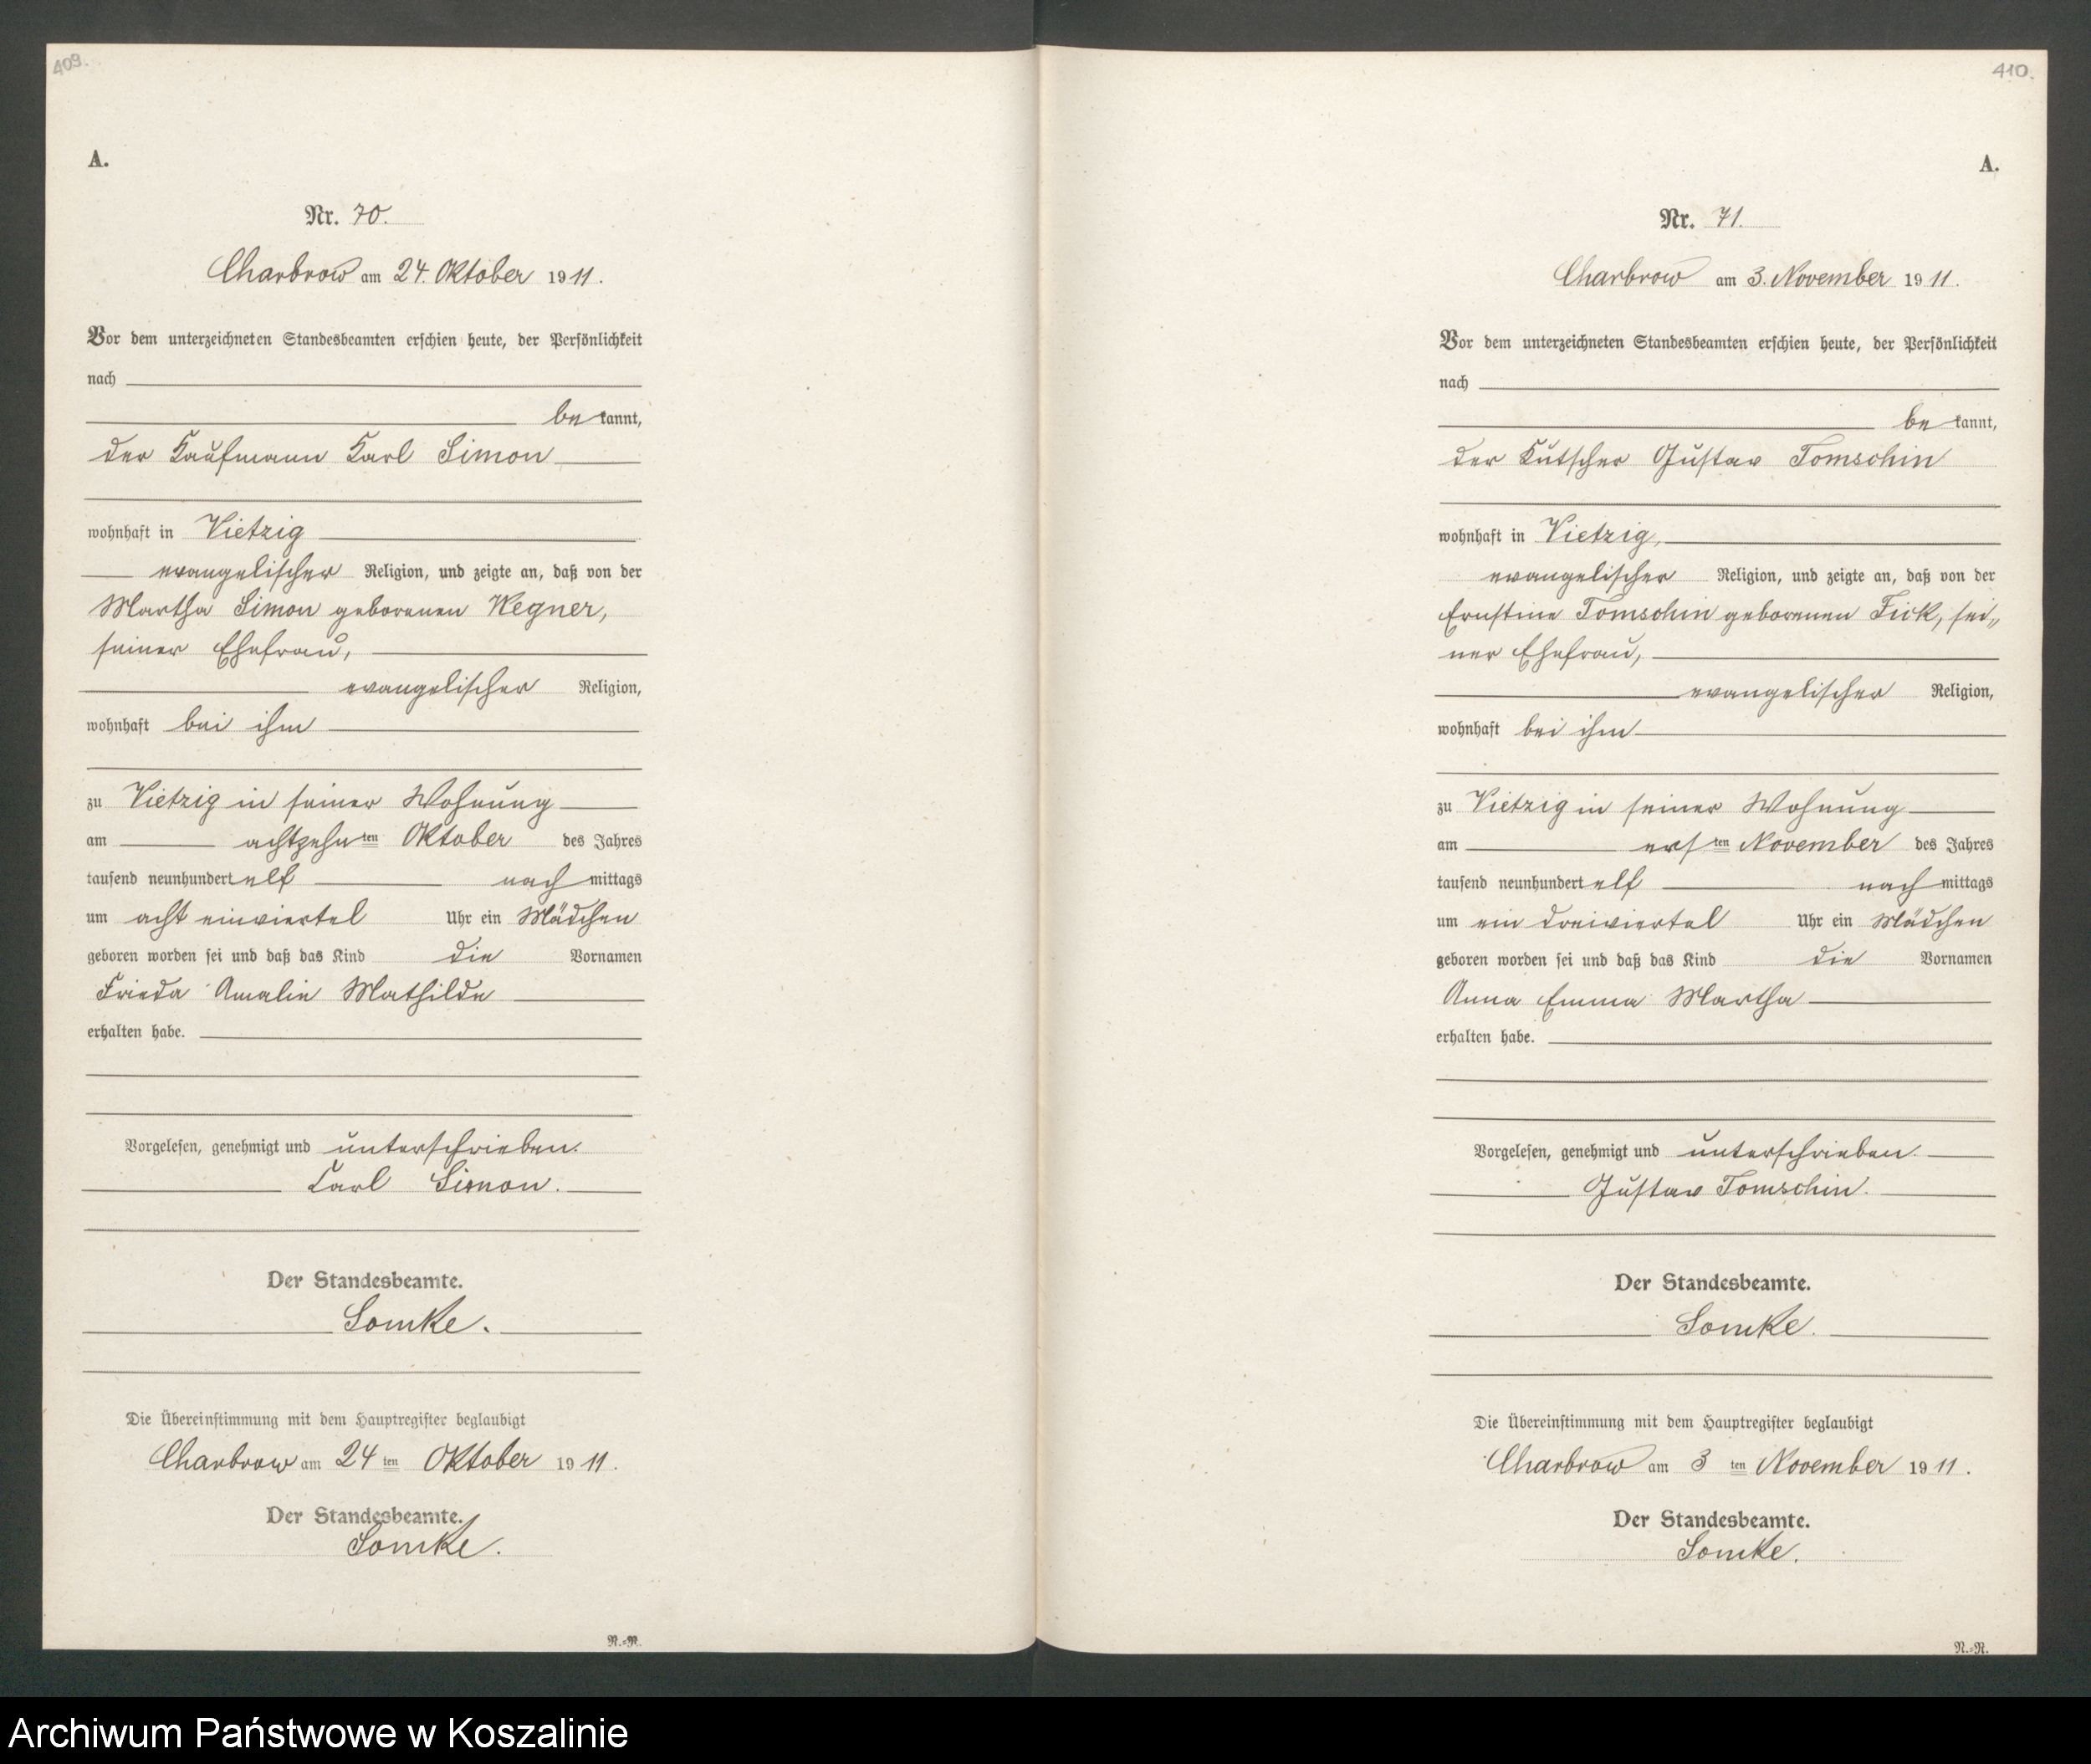 409.
A.
Nr. 70.
Charbrow am 24. Oktober 1911.
Vor dem unterzeichneten Standesbeamten erschien heute, der Persönlichkeit
nach
bekannt,
der Kaufmann Karl Simon
wohnhaft in Vietzig
evangelischer Religion, und zeigte an, daß von der
Martha Simon geborenen Wegner,
seiner Ehefrau,
evangelischer Religion,
wohnhaft bei ihm
zu Vietzig in seiner Wohnung
am achtzehnten Oktober des Jahres
tausend neunhundert elf nachmittags
um acht einviertel Uhr ein Mädchen
geboren worden sei und daß das Kind die Vornamen
Frieda Amalie Mathilde
erhalten habe.
Vorgelesen, genehmigt und unterschrieben.
Karl Simon.
Der Standesbeamte.
Somke.
Die Übereinstimmung mit dem Hauptregister beglaubigt
Charbrow am 24ten Oktober 1911.
Der Standesbeamte.
Somke.
N.=R.
410.
A.
Nr. 71.
Charbrow am 3. November 1911.
Vor dem unterzeichneten Standesbeamten erschien heute, der Persönlichkeit
nach
bekannt,
der Kutscher Gustav Tomschin
wohnhaft in Vietzig,
evangelischer Religion, und zeigte an, daß von der
Ernstine Tomschin geborenen Fick, sei„
ner Ehefrau,
evangelischer Religion,
wohnhaft bei ihm
zu Vietzig in seiner Wohnung
am ersten November des Jahres
tausend neunhundert elf nachmittags
um ein dreiviertel Uhr ein Mädchen
geboren worden sei und daß das Kind die Vornamen
Anna Emma Martha
erhalten habe.
Vorgelesen, genehmigt und unterschrieben.
Gustav Tomschin.
Der Standesbeamte.
Somke.
Die Übereinstimmung mit dem Hauptregister beglaubigt
Charbrow am 3ten November 1911.
Der Standesbeamte.
Somke.
N.=R.
Archiwum Państwowe w Koszalinie